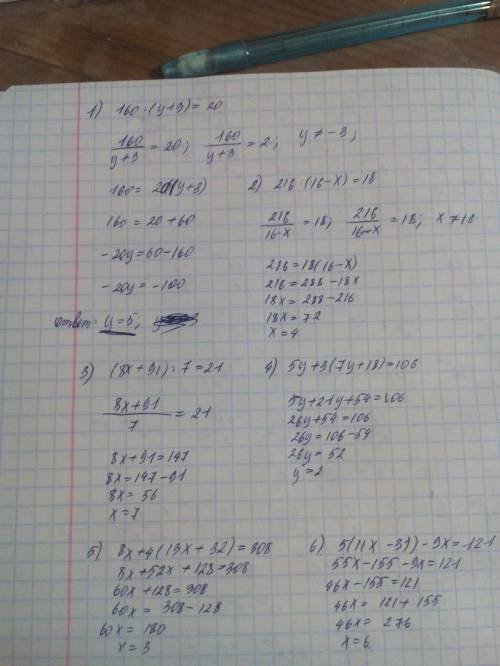 1) 160 : (y+3) = 20
160/(y+3) = 20; 160/(y+3) = 2; y ≠ -3;
160 = 20(y+3)
160 = 20 + 60
-20y = 60 - 160
-20y = -100
ответ: y = 5;
2) 216 : (16-x) = 18
216/(16-x) = 18; 216/(16-x) = 18; x ≠ 18
216 = 18(16-x)
216 = 288 - 18x
18x = 288 - 216
18x = 72
x = 4
3) (8x + 91) : 7 = 21
(8x + 91)/7 = 21
8x + 91 = 147
8x = 147 - 91
8x = 56
x = 7
4) 5y + 3(7y + 18) = 106
5y + 21y + 54 = 106
26y + 54 = 106
26y = 106 - 54
26y = 52
y = 2
5) 8x + 4(13x + 32) = 308
8x + 52x + 128 = 308
60x + 128 = 308
60x = 308 - 128
60x = 180
x = 3
6) 5(11x - 31) - 9x = 121
55x - 155 - 9x = 121
46x - 155 = 121
46x = 121 + 155
46x = 276
x = 6